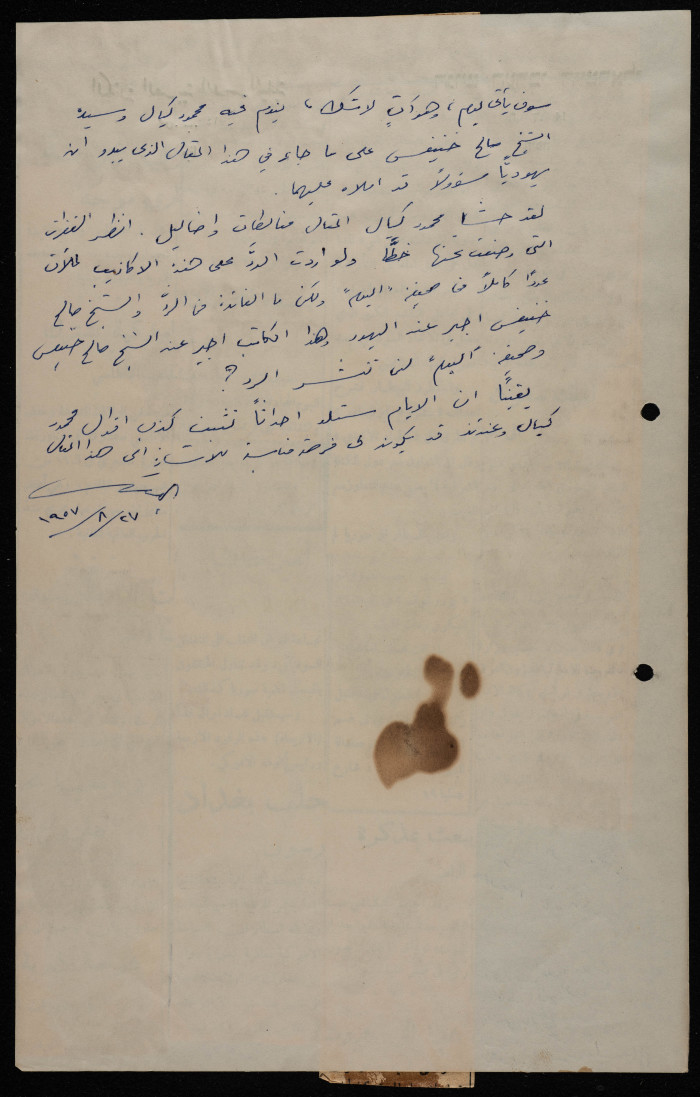 سوف يأتي يوم، وهو آتٍ لا شك، يندم فيه محمود كيال وسيده
الشيخ صالح خنيفس على ما جاء في هذا المقال الذي يبدو أن
يهوديًا مسؤولاً قد املاه عليهما.
لقد حشا محمود كيال المقال مغالطات واضاليل. انظر الفقرات
التي وضعت تحتها خطًّا ولو اردت الردَّ على هذه الاكاذيب لملأت
عددًا كاملاً من صحيفة "اليوم" ولكن ما الفائدة من الردّ والشيخ صالح
خنيفس اجير عند اليهود وهذا الكاتب اجير عند الشيخ صالح خنيفس
وصحيفة "اليوم" لن تنشر الرد؟
يقينًا ان الايام ستلد احداثاً تثبت كذب اقوال محمود
كيال وعندئذ قد يكون لي فرصة مناسبة للاشارة الى هذا المقال
٢٧/٨/١٩٥٧